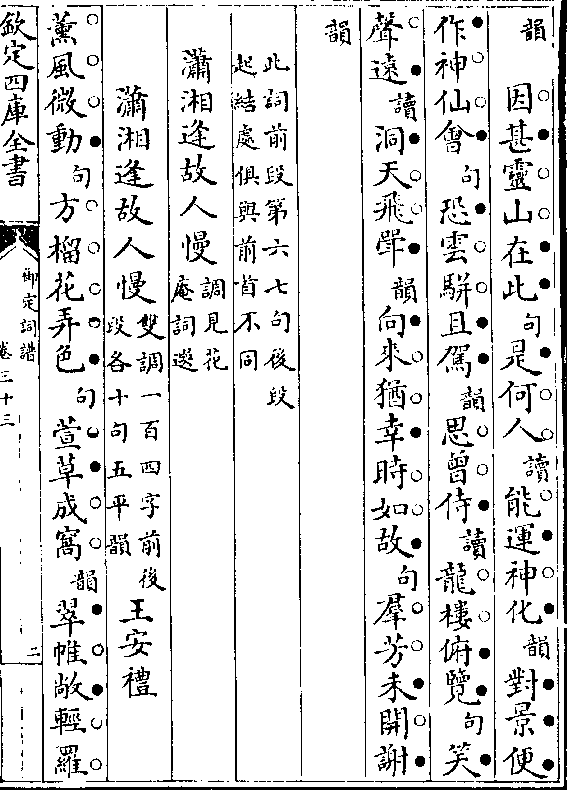 韻　因甚靈山在此句是何人讀能運神化韻對景便
作神仙會句恐雲駢且駕韻思曾侍讀龍樓俯覽句笑
聲遠讀洞天飛斝韻向來猶幸時如故句羣芳未開謝
韻
此詞前段第六七句後段
起結處俱與前首不同
瀟湘逢故人慢調見花
菴詞選
瀟湘逢故人慢雙調一百四字前後
段各十句五平韻王安禮
薰風微動句方榴花弄色句萱草成窩韻翠帷敞輕羅
欽定四庫全書
御定詞譜
卷三十三
二